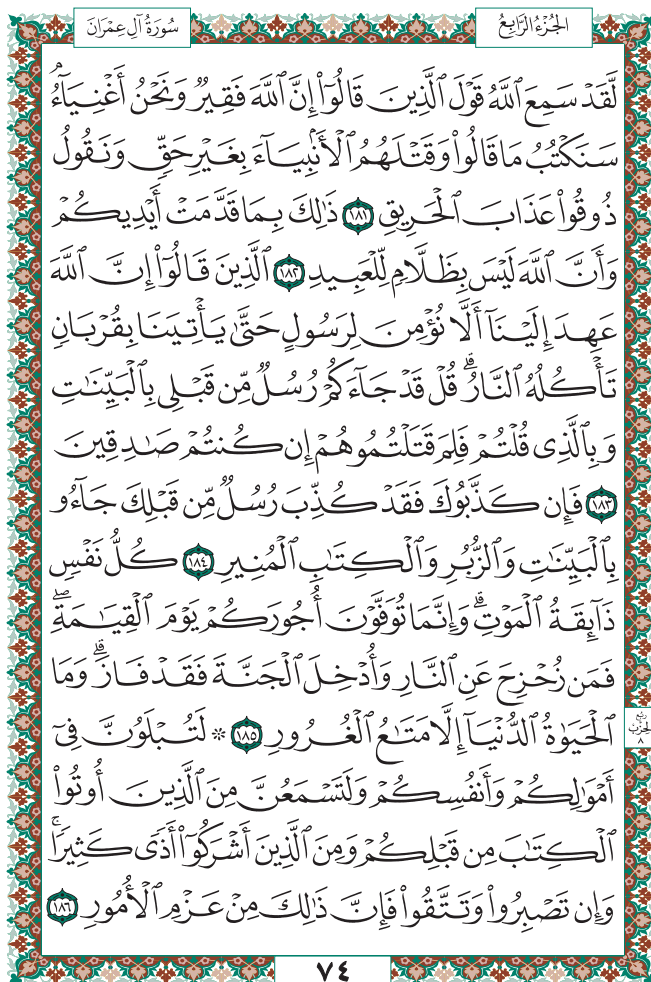 الجُزْءُ الرَّابِعُ
سُورَةُ آلِ عِمْرَان
لَّقَدْ سَمِعَ ٱللَّهُ قَوْلَ ٱلَّذِينَ قَالُوٓا۟ إِنَّ ٱللَّهَ فَقِيرٌ وَنَحْنُ أَغْنِيَآءُ ۘ
سَنَكْتُبُ مَا قَالُوا۟ وَقَتْلَهُمُ ٱلْأَنۢبِيَآءَ بِغَيْرِ حَقٍّ وَنَقُولُ
ذُوقُوا۟ عَذَابَ ٱلْحَرِيقِ ١٨١ ذَٰلِكَ بِمَا قَدَّمَتْ أَيْدِيكُمْ
وَأَنَّ ٱللَّهَ لَيْسَ بِظَلَّامٍ لِّلْعَبِيدِ ١٨٢ ٱلَّذِينَ قَالُوٓا۟ إِنَّ ٱللَّهَ
عَهِدَ إِلَيْنَآ أَلَّا نُؤْمِنَ لِرَسُولٍ حَتَّىٰ يَأْتِيَنَا بِقُرْبَانٍ
تَأْكُلُهُ ٱلنَّارُ ۗ قُلْ قَدْ جَآءَكُمْ رُسُلٌ مِّن قَبْلِى بِٱلْبَيِّنَٰتِ
وَبِٱلَّذِى قُلْتُمْ فَلِمَ قَتَلْتُمُوهُمْ إِن كُنتُمْ صَٰدِقِينَ
١٨٣ فَإِن كَذَّبُوكَ فَقَدْ كُذِّبَ رُسُلٌ مِّن قَبْلِكَ جَآءُو
بِٱلْبَيِّنَٰتِ وَٱلزُّبُرِ وَٱلْكِتَٰبِ ٱلْمُنِيرِ ١٨٤ كُلُّ نَفْسٍ
ذَآئِقَةُ ٱلْمَوْتِ ۗ وَإِنَّمَا تُوَفَّوْنَ أُجُورَكُمْ يَوْمَ ٱلْقِيَٰمَةِ ۖ
فَمَن زُحْزِحَ عَنِ ٱلنَّارِ وَأُدْخِلَ ٱلْجَنَّةَ فَقَدْ فَازَ ۗ وَمَا
ٱلْحَيَوٰةُ ٱلدُّنْيَآ إِلَّا مَتَٰعُ ٱلْغُرُورِ ١٨٥ ۞ لَتُبْلَوُنَّ فِىٓ
أَمْوَٰلِكُمْ وَأَنفُسِكُمْ وَلَتَسْمَعُنَّ مِنَ ٱلَّذِينَ أُوتُوا۟
ٱلْكِتَٰبَ مِن قَبْلِكُمْ وَمِنَ ٱلَّذِينَ أَشْرَكُوٓا۟ أَذًى كَثِيرًا ۚ
وَإِن تَصْبِرُوا۟ وَتَتَّقُوا۟ فَإِنَّ ذَٰلِكَ مِنْ عَزْمِ ٱلْأُمُورِ ١٨٦
ربع
الحزب
٨
٧٤